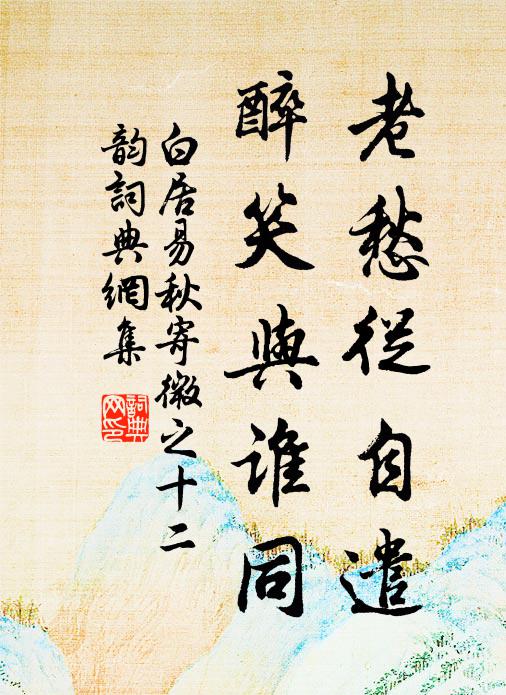 老愁從自遣
醉笑與誰同
白居易秋寄微之十二
韵詞典網集
詞典網印